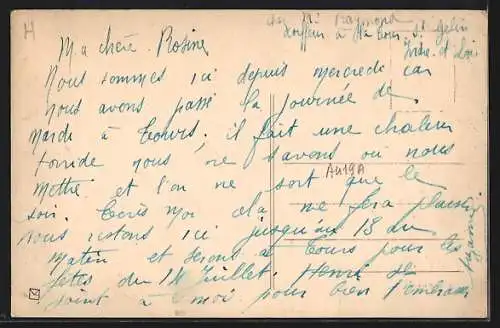 H
chez Mr Raymond
coiffeur à Ste Cour St Gelin
Indre et Loire
Ma chère Rosine
Nous sommes ici depuis mercredi car
nous avons passé la journée de
mardi à Tours. il fait une chaleur
torride nous ne savons où nous
mettre et l'on ne sort que le
soir. Écris moi cela me fera plaisir
AU19A
Nous restons ici jusqu'au 13 au
matin et serons à Tours pour les
fêtes du 14 Juillet. Henri se
joint à moi pour bien t'embrasser
Suzanne